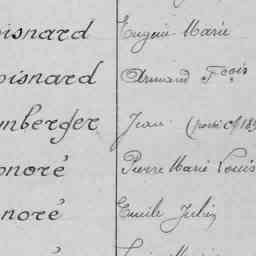 oisnard Eugène Marie
oisnard Armand Fçois
mberger Jean (porté cl 189
onoré Pierre Marie Louis
noré Emile Julien